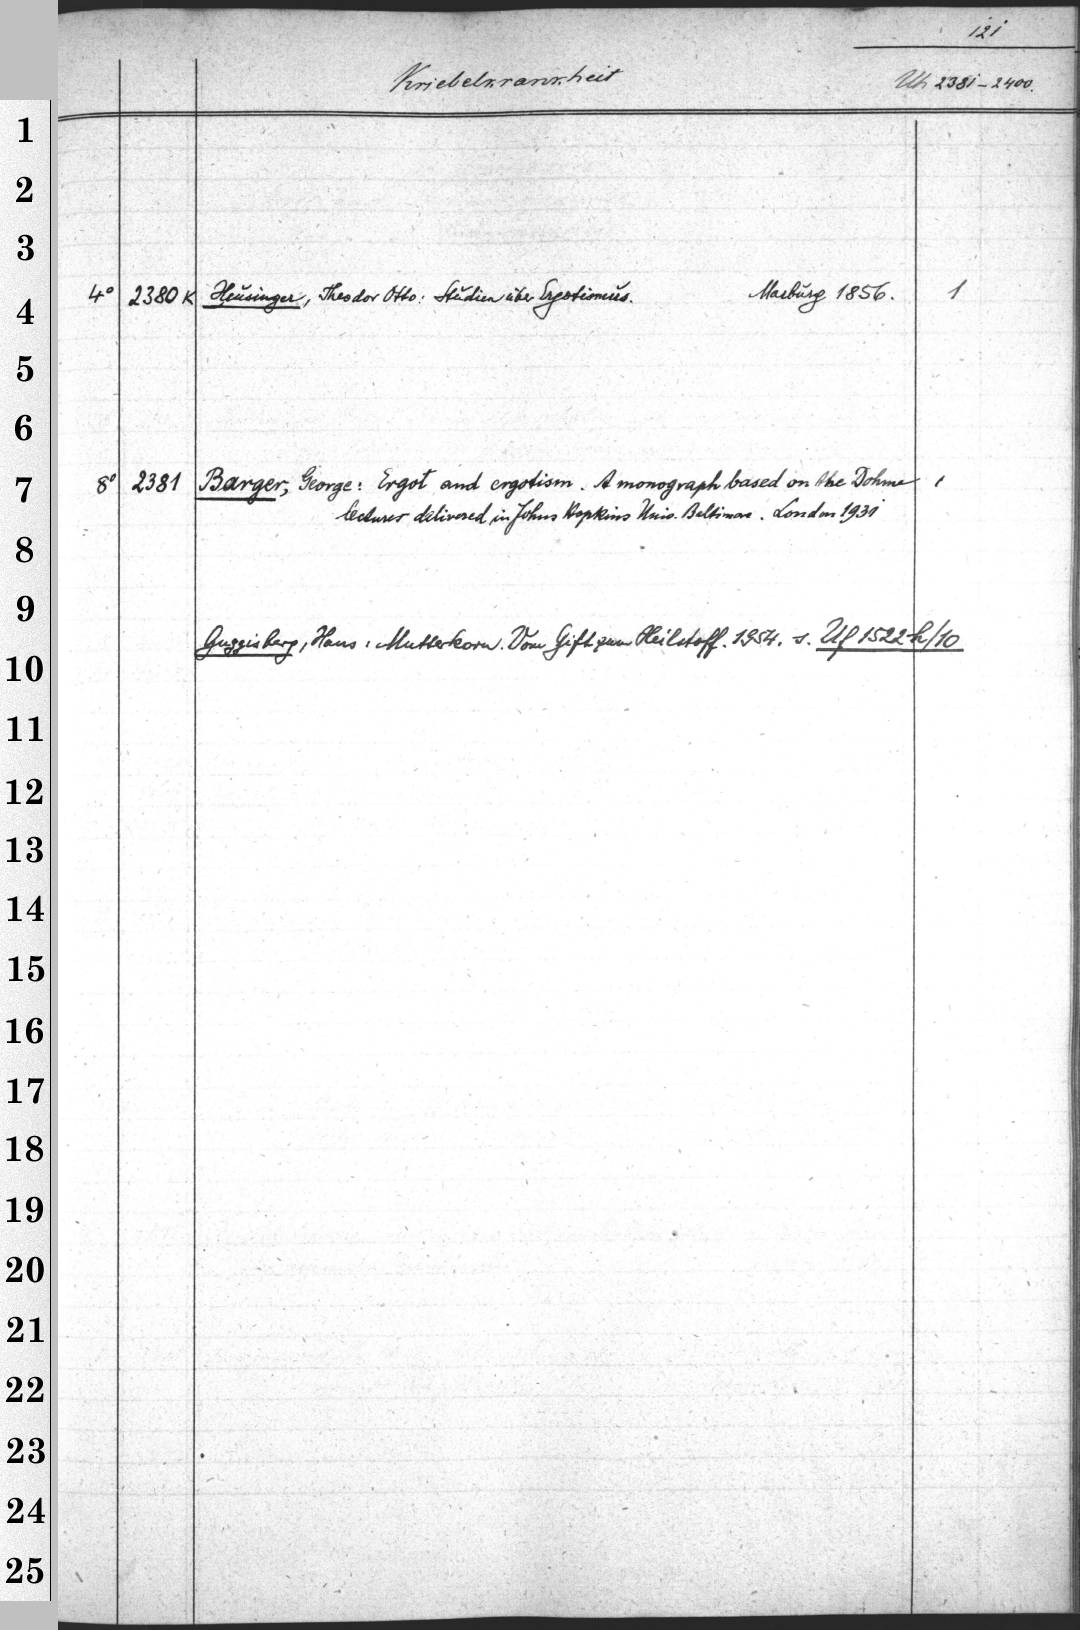 121
Kriebelkrankheit
Uh 2381-2400.
1
2
3
4° 2380 K Heusinger, Theodor Otto: Studien über Ergotismus. Marburg 1856. 1
4
5
6
8° 2381 Barger, George: Ergot and ergotism. A monograph based on the Dohme 1
7
lectures delivered in Johns Hopkins Univ. Baltimore. London 1931
8
9
Guggisberg, Hans: Mutterkorn. Vom Gift zum Heilstoff. 1954. s. Uf 1522 h/10
10
11
12
13
14
15
16
17
18
19
20
21
22
23
24
25